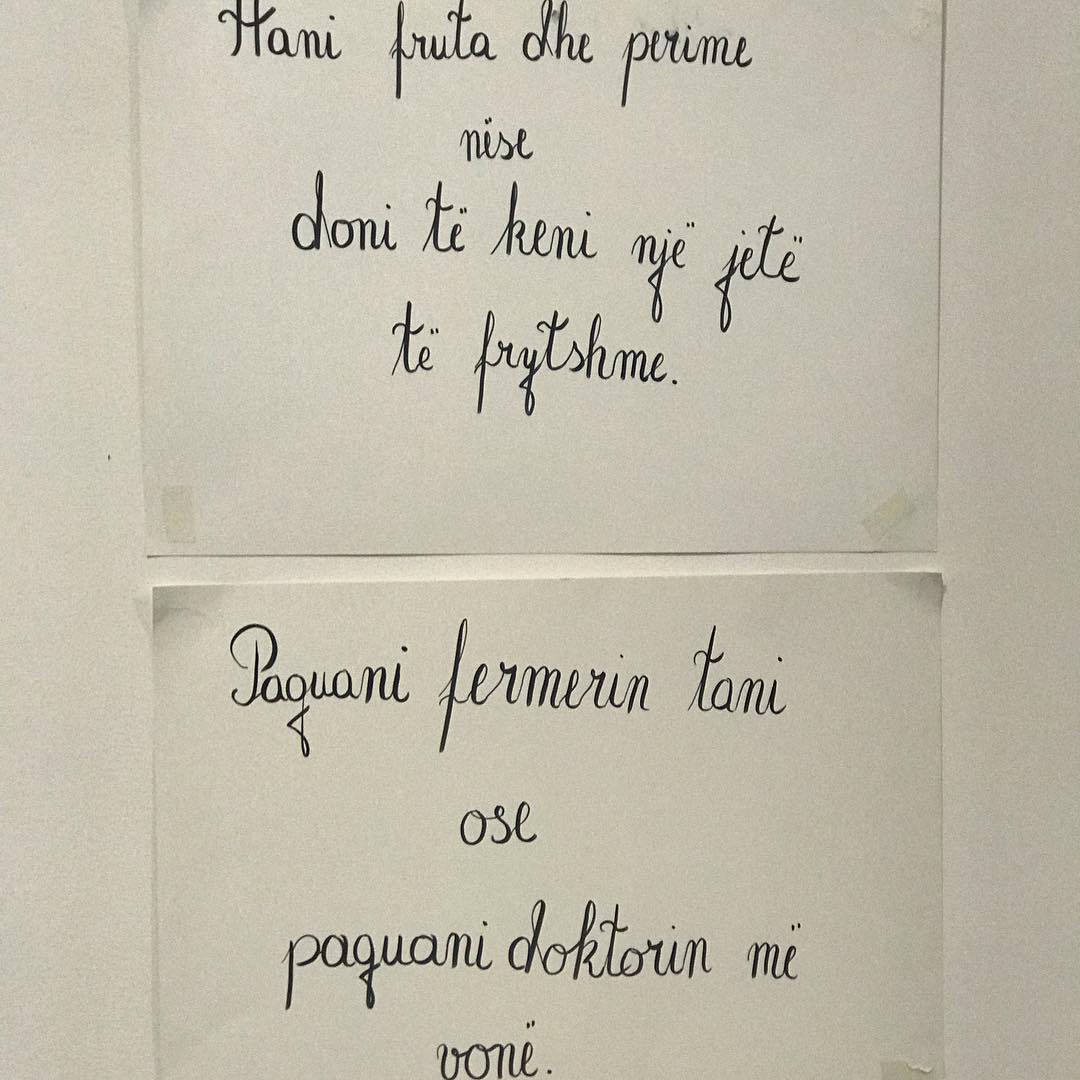 Hani fruta dhe perime
nëse
doni të keni një jetë
të frytshme.
Paguani fermerin tani
ose
paguani doktorin më
vonë.